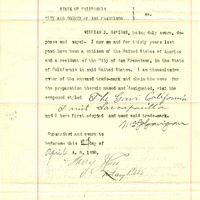 STATE OF CALIFORNIA
CITY AND COUNTY OF SAN FRANCISCO
ss.
WILLIAM J. being duly sworn, de-
poses and says:- I now am and for thirty years last
past have been a citizen of the United States of America
and a resident of the City of San Francisco, in the State
of California in said United States. I am the exclusive
owner of the annexed trade-mark and claim the same for
the preparation herein named and designated, viz:
the compound styled The Great California
Fruit Sarsaparilla
and I have first adopted and used said trade-mark.
Subscribed and sworn to
before me this day of
April A. D. 1890.